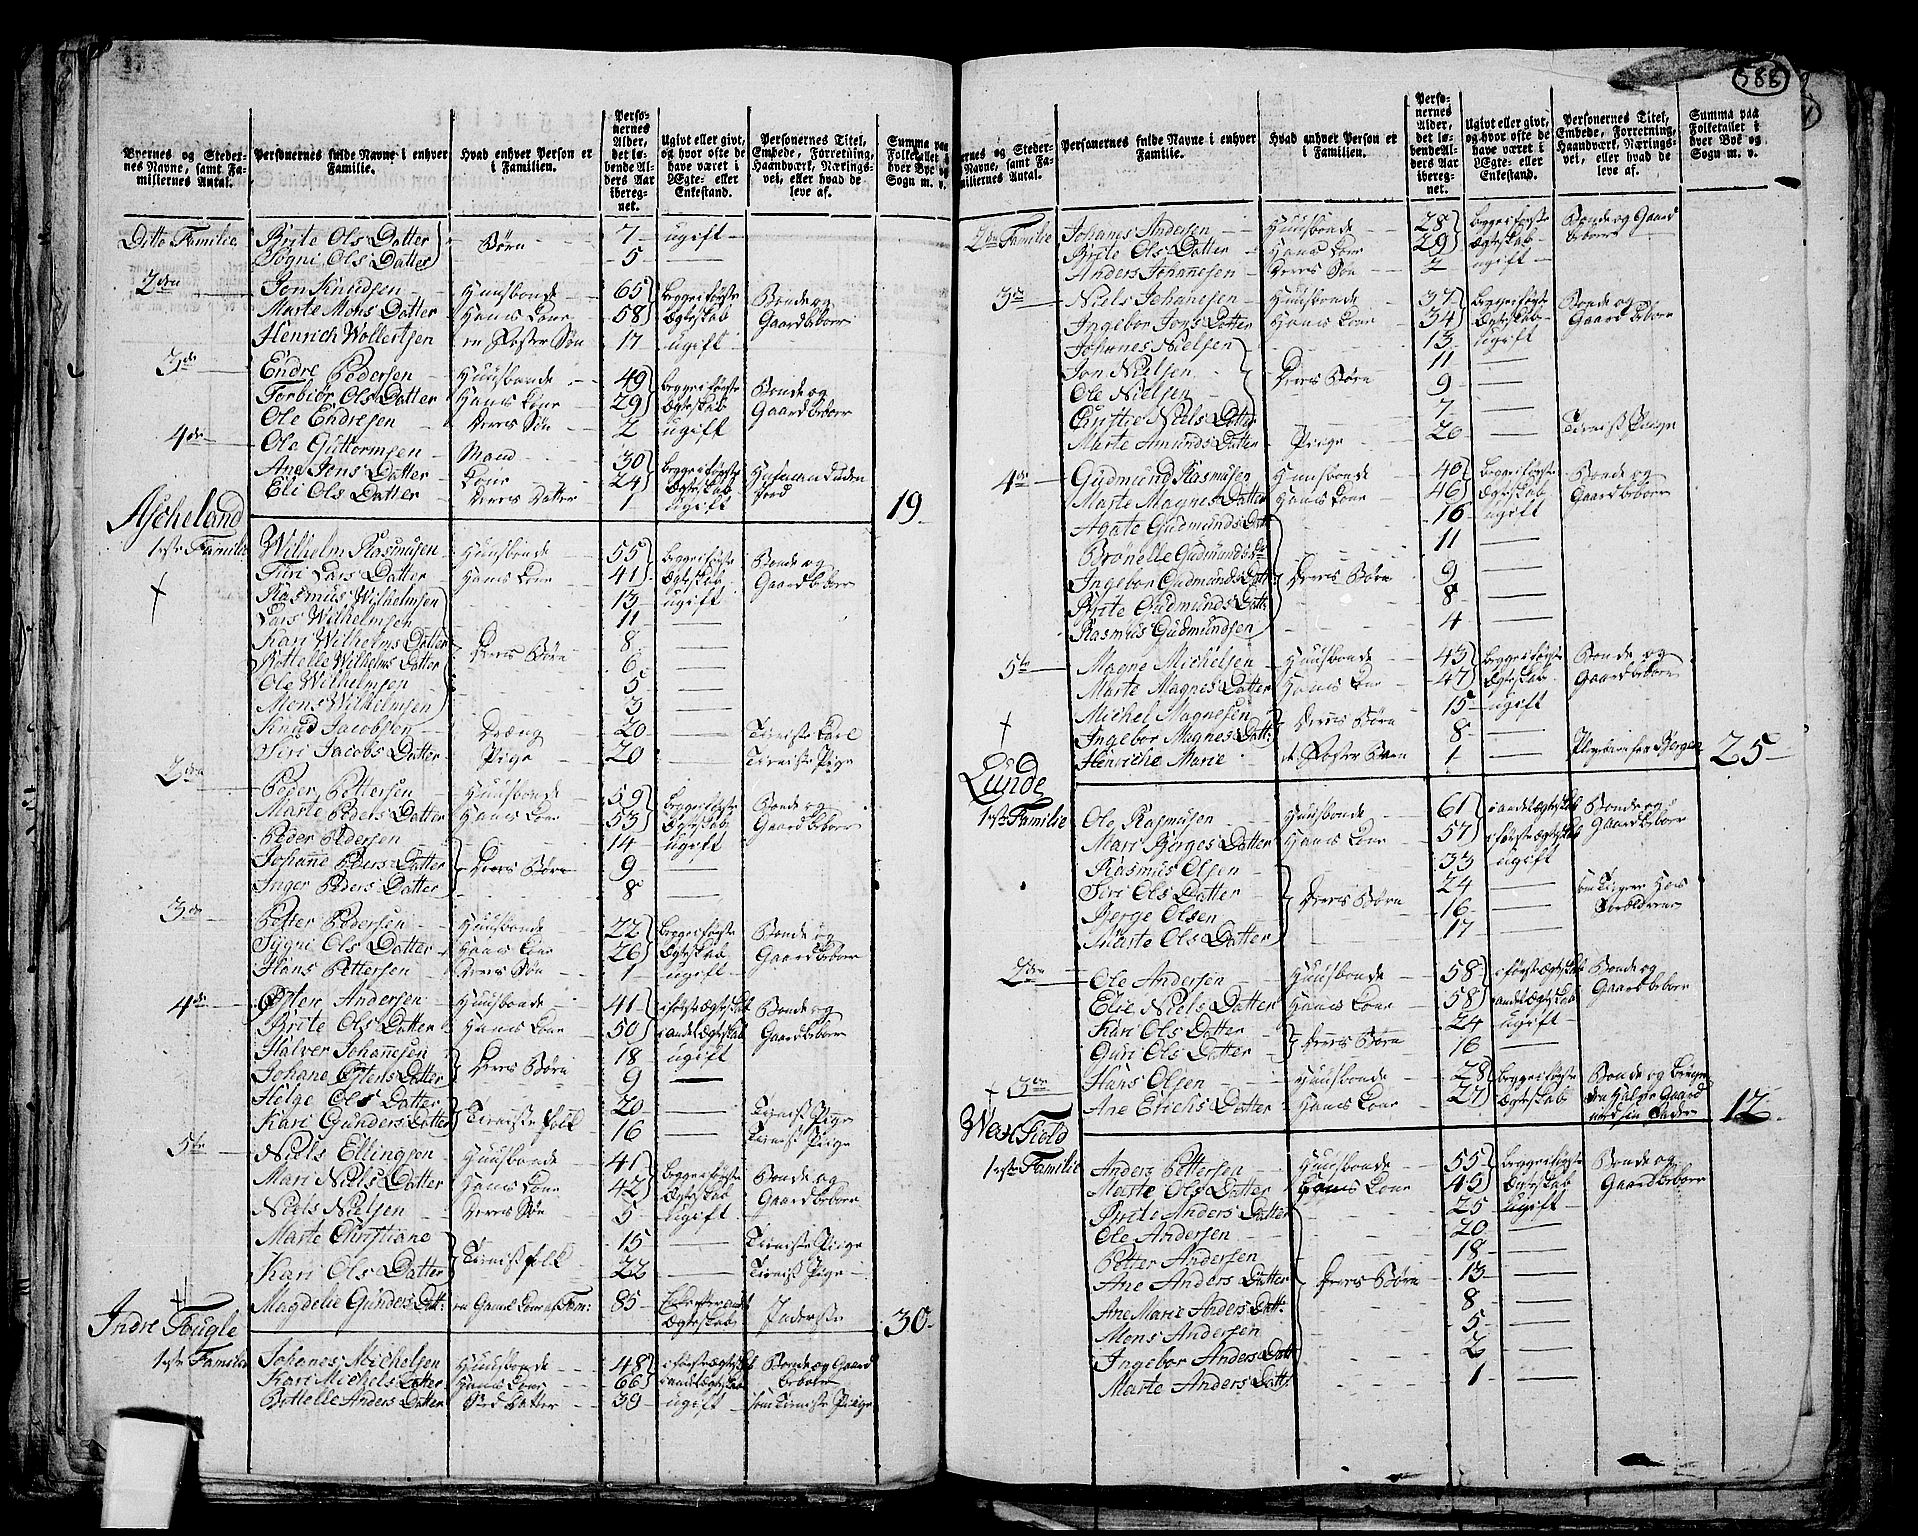 588
Byernes og Stedernes Navne, samt Familiernes Antal. | Personernes fulde Navne i enhver Familie. | Hvad enhver Person er i Familien. | Personernes Alder, det løbende Alders Aar iberegnet. | Ugivt eller givt, og hvor ofte de have været i Ægte- eller Enkestand. | Personernes Titel, Embede, Forretning, Haandværk, Næringsvei, eller hvad de leve af. | Summa paa Folketallet i hver Bye og Sogn m. v.
Ditto Familie | Brite Ols Datter | Børn | 7 | ugift
Sogni Ols Datter | 5
2den | Jon Knudsen | Huusbonde | 65 | begge i første | Bonde og
Marte Mons Datter | Hans Kone | 58 | Ægteskab | Gaardbeboer
Henrich Wollertsen | en Foster Søn | 17 | ugift
3de | Endre Pedersen | Huusbonde | 49 | begge i første | Bonde og
Torbiør Ols Datter | Hans Kone | 29 | Ægteskab | Gaardbeboer
Ole Endresen | Deres Søn | 2 | ugift
4de | Ole Guttormsen | Mand | 30 | begge i første
Ane Jons Datter | Kone | 24 | Ægteskab | Huusmand uden Jord
Eli Ols Datter | Deres Datter | 1 | ugift | 19
Ascheland
1ste Familie | Wilhelm Rasmusen | Huusbonde | 55 | begge i første | Bonde og
Turi Lars Datter | Hans Kone | 41 | Ægteskab | Gaardbeboer
Rasmus Wilhelmsen | 13 | ugift
Lars Wilhelmsen | 11
Kari Wilhelms Datter | Deres Børn | 8
Bottelle Wilhelms Datter | 6
Ole Wilhelmsen | 5
Mons Wilhelmsen | 3
Knud Jacobsen | Dræng | 20 | Tieniste Karl
Siri Jacobs Datter | Pige | 20 | Tieniste Pige
2den | Peder Pettersen | Huusbonde | 59 | begge i første | Bonde og
Marte Peders Datter | Hans Kone | 53 | Ægteskab | Gaardbeboer
Peder Pedersen | 14 | ugift
Johanne Peders Datter | Deres Børn | 9
Inger Peders Datter | 8
3de | Petter Pedersen | Huusbonde | 22 | begge i første | Bonde og
Sygni Ols Datter | Hans Kone | 26 | Ægteskab | Gaardbeboer
Hans Pettersen | Deres Søn | 1 | ugift
4de | Østen Andersen | Huusbonde | 41 | i første ægteskab | Bonde og
Brite Ols Datter | Hans Kone | 50 | i andet ægteskab | Gaardbeboer
Halver Johanesen | Deres Børn | 18 | ugift
Johane Østens Datter | 9
Helge Ols Datter | Tieniste folk | 20 | Tieniste Pige
Kari Gunders Datter | 16 | Tieniste Pige
5te | Niels Ellingsen | Huusbonde | 41 | begge i første | Bonde og
Mari Niels Datter | Hans Kone | 42 | Ægteskab | Gaardbeboer
Niels Nielsen | Deres Søn | 5 | ugift
Marte Christiane | Tieniste folk | 15 | Tieniste Piige
Kari Ols Datter | 22 | Tieniste Pige
Magdelie Gunders Datt: | en Gammel Kone af Fam: | 85 | Ægteskab | Inderste | 30
Indre Fougle
1ste Familie | Johanes Michelsen | Huusbonde | 48 | i første ægteskab | Bonde og Gaard
Kari Michels Datter | Hans Kone | 66 | i andet ægteskab | beboer
Bottelle Anders Datter | Sted Datter | 39 | ugift | som Tieniste Piige
Byernes og Stedernes Navne, samt Familiernes Antal. | Personernes fulde Navne i enhver Familie. | Hvad enhver Person er i Familien. | Personernes Alder, det løbende Alders Aar iberegnet. | Ugivt eller givt, og hvor ofte de have været i Ægte- eller Enkestand. | Personernes Titel, Embede, Forretning, Haandværk, Næringsvei, eller hvad de leve af. | Summa paa Folketallet i hver Bye og Sogn m. v.
2den Familie | Johanes Andersen | Huusbonde | 28 | begge i første | Bonde og Gaard
Brite Ols Datter | Hans Kone | 29 | Ægteskab | beboer
Anders Johanesen | Deres Søn | 2 | ugift
3de | Niels Johanesen | Huusbonde | 37 | begge i første | Bonde og
Ingebor Jons Datter | Hans Kone | 34 | Ægteskab | Gaardbeboer
Johanes Nielsen | 13 | ugift
Jon Nielsen | Deres Børn | 11
Ole Nielsen | 9
Christie Niels Datter | 7
Marte Amunds Datter | Pige | 20 | Tieniste Piige
4de | Gudmund Rasmusen | Huusbonde | 40 | begge i første | Bonde og
Marte Magnes Datter | Hans Kone | 46 | Ægteskab | Gaardbeboer
Agate Gudmunds Datt: | 16 | ugift
Brønelle Gudmunds Da: | 11
Ingebor Gudmunds Datt: | Deres Børn | 9
Brite Gudmunds Datt: | 8
Rasmus Gudmundsen | 4
5te | Magne Michelsen | Huusbonde | 43 | begge i første | Bonde og
Marte Magnes Datter | Hans Kone | 47 | Ægteskab | Gaardbeboer
Michel Magnesen | Deres Børn | 15 | ugift
Ingebor Magnes Datt: | 8
Henriche Marie | et Foster Barn | 1 | Bergen | 25
Lunde
1ste Familie | Ole Rasmusen | Huusbonde | 61 | i andet ægteskab | Bonde og
Mari Børges Datter | Hans Kone | 57 | i første ægteskab | Gaardbeboer
Rasmus Olsen | 33 | ugift
Siri Ols Datter | Deres Børn | 24 | som Tienere hos
Børge Olsen | 16 | Forældrene
Marte Ols Datter | 17
2den | Ole Andersen | Huusbonde | 58 | i første ægteskab | Bonde og
Elie Niels Datter | Hans Kone | 58 | i andet ægteskab | Gaardbeboer
Kari Ols Datter | Deres Børn | 24 | ugift
Guri Ols Datter | 16
3de | Hans Olsen | Huusbonde | 28 | begge i første | Bonde og Bruger
Ane Erichs Datter | Hans Kone | 27 | Ægteskab | den halve Gaard med sin Fader | 12
West Field
1ste Familie | Anders Pettersen | Huusbonde | 55 | begge i første | Bonde og
Marte Ols Datter | Hans Kone | 45 | Ægteskab | Gaardbeboer
Brite Anders Datter | 25 | ugift
Ole Andersen | 20
Petter Andersen | 18
Ane Anders Datter | Deres Børn | 13
Ane Marie Anders Datt: | 8
Mons Andersen | 5
Ingebor Anders Datt: | 2
Marte Anders Datt: | 1